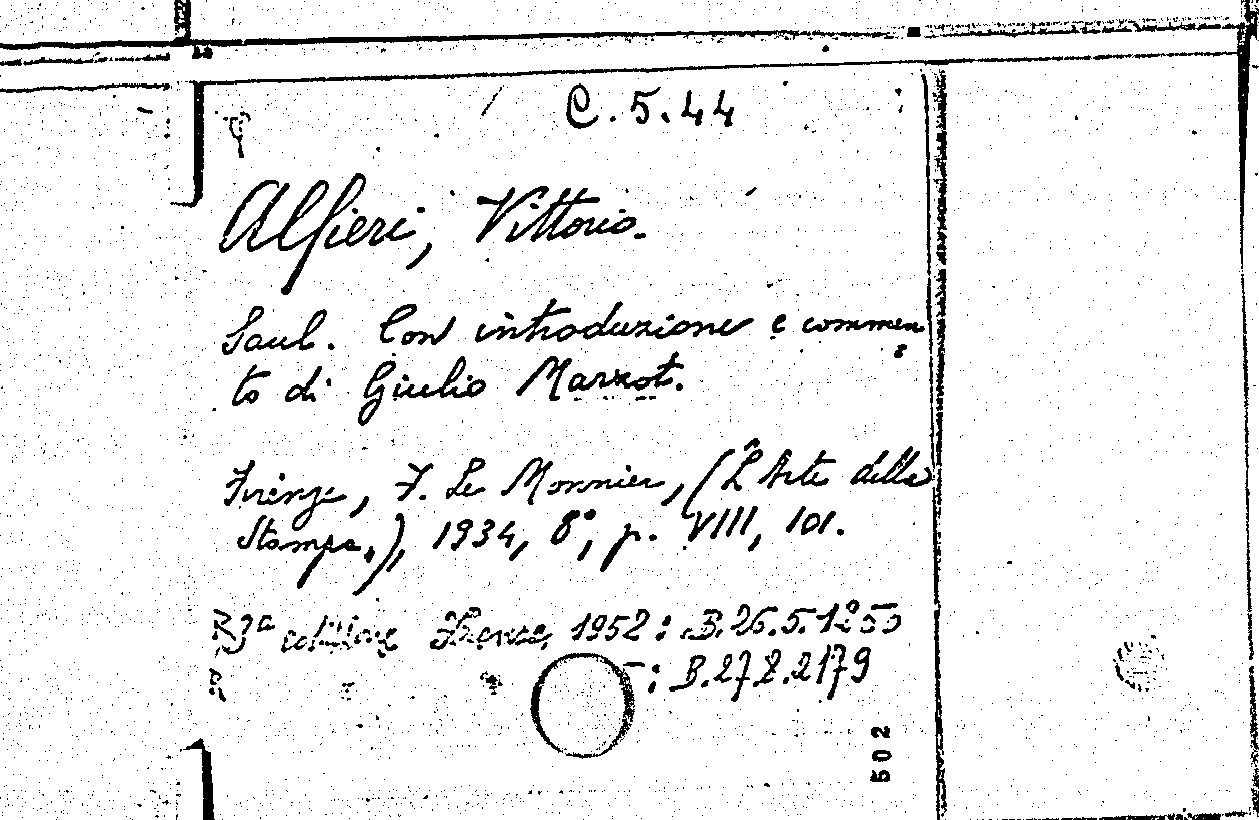 C. 5. 44
Alfieri, Vittorio.
Saul. Con introduzione e commen
to di Giulio Marzot.
Firenze, F. Le Monnier, (L'Arte della
Stampa,), 1934, 8°, p. VIII, 101.
3ª edizione Firenze, 1952: B.26.5.1255
– : B.27.8.2179
502